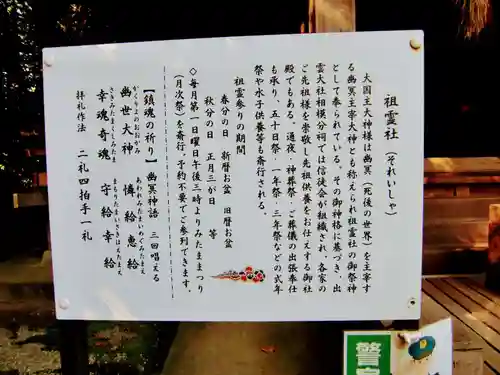 祖霊社(それいしゃ)
大国主大神様は幽冥(死後の世界)を主宰す
る幽冥主宰大神とも称えられ祖霊社の御祭神
として奉られている。その御神格に基づき、出
雲大社相模分祠では信徒会が組織され、各家の
ご先祖様を崇敬し先祖供養をお仕えする御社
殿でもある。通夜・神葬祭・ご葬儀の出張奉仕
も承り、五十日祭・一年祭・三年祭などの式年
祭や水子供養等も斎行される。
祖霊参りの期間
春分の日 新暦お盆 旧暦お盆
秋分の日 正月三が日 等
◇毎月第一日曜日午後三時よりみたままつり
(月次祭)を斎行。予約不要でご参列できます。
【鎮魂の祈り】幽冥神語 三回唱える
かくりよのおおかみ あわれみたまいめぐみたまえ
幽世大神 憐給 恵給
さきみたまくしみたま まもりたまいさきはえたまえ
幸魂奇魂 守給幸給
拝礼作法 二礼四拍手一礼
警